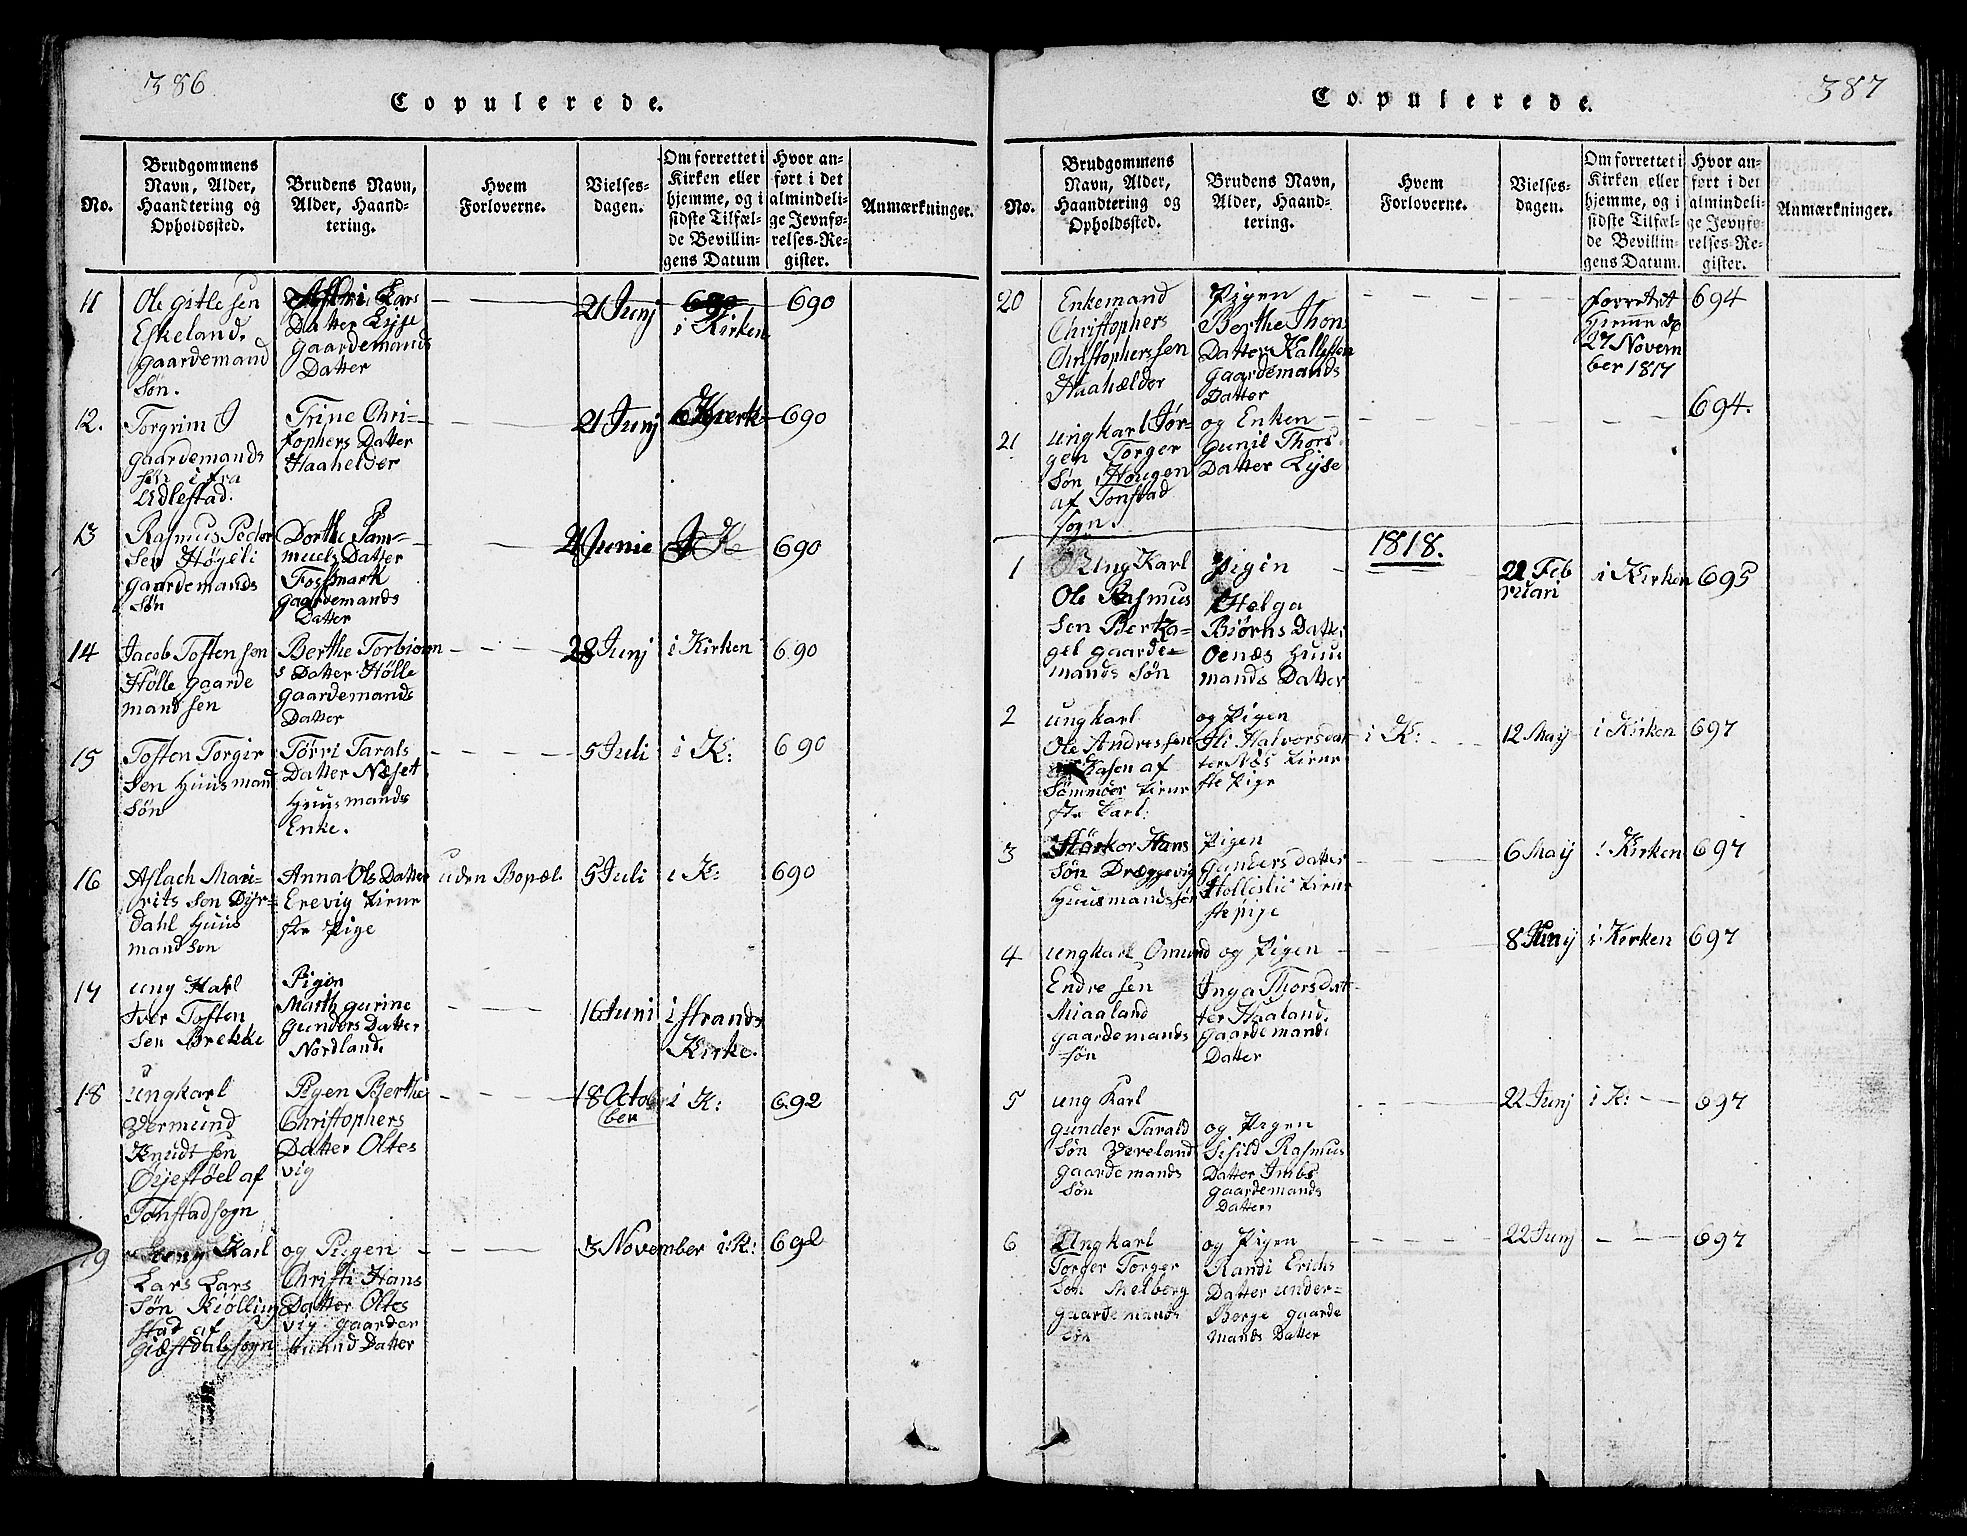 386
Copulerede.
No.
Brudgommens
Navn, Alder,
Haandtering og
Opholdssted.
Brudens Navn,
Alder, Haand-
tering.
Hvem
Forloverne.
Vielses-
dagen.
Om forrettet i
Kirken eller
hjemme, og i
sidste Tilfæl-
de Bevillin-
gens Datum
Hvor an-
ført i det
almindeli-
ge Jevnfø-
relses-Re-
gister.
Anmærkninger.
11
Ole Gitle sen
Eskeland.
gaardemand
Søn.
Lars
Datter Lyse
gaardemands
Datter
21 Junj
i Kirken
690
12.
Torgrim J
gaardemands
søn i fra
Udlestad.
Trine Chri-
fophers Datter
Haahelder
21 Junj
690
13
Rasmus Peder
Sen Høgeli
gaardemands
søn
Dorthe Sam-
muels Datter
Fossmark
gaardemands
Datter
21 Junie
K
690
14
Jacob Tosten sen
Hølle gaarde
mand sen
Berthe Torbiorn
s Datter Hølle
gaardemands
Datter
28 Junj
i Kirken
690
15
Tosten Torgir
Sen Huusmand
Søn
Torri Tarals
Datter Næset
Huusmands
Enke.
5 Juli
i K:
690
16
Aslach Mari-
rits Søn Dyr-
dahl Huus
mand søn
Anna Ols Datter
Erevig
Pige
uden Bopæl.
5 Juli
i K:
690
17
ung Karl
Iver Tosten
Sen Brekke
Pigen
Marth gurine
Gunders Datter
Nordland.
16 Juni
i Strands
Kirke.
18
ungkarl
Vermund
Knudt sen
Øyestøel af
Tonstad sogn
Pigen Berthe
Christophers
Datter Oltes
vig
18 Octo
ber
i K:
692
19
ung Karl
Lars Lars
Søn Kiølling
stad af
Giæstdals sogn
og Pigen
Christi Hans
Datter Oltes
vig gaarder
Datter
3 November
i: K:
692
387
Copulerede.
No.
Brudgommens
Navn, Alder,
Haandtering og
Opholdssted.
Brudens Navn,
Alder, Haand-
tering.
Hvem
Forloverne.
Vielses-
dagen.
Om forrettet i
Kirken eller
hjemme, og i
sidste Tilfæl-
de Bevillin-
gens Datum.
Hvor an-
ført i det
almindeli-
ge Jevnfø-
relses-Re-
gister.
Anmærkninger.
20
Enkemand
Christophers
Christophers sen
Haahælder
Pigen
Berthe Thors
Datter Kallesten
gaardemands
Datter
forretet
hjemme d
27 Novem
ber 1817
694
21
ungkarl Jør-
gen Torger
Søn Hougen
af Tonstad
sogn.
og Enken
Gunil Thors
Datter Lyse
694.
1818.
1
Ung Karl
Ole Rasmus
Sen Berka-
gel gaarde-
mands Søn
Pigen
Helga
Biørns Datter
Oenæs Huus
mands Datter
21 Feb
ruari
i Kirken
695
2
ungkarl
Ole Andres sen
Kasen af
Sømmær
Karl:
og Pigen
Ili Halvorsdat
ter Næs
Pige
i K:
12 Maij
i Kirken
697
3
Størkor Hans
Søn Dræggevig
Huusmands søn
Pigen
Gunders datter
Holleslie
ste pige
6 Maij
i Kirken
697
4
ungkarl Omund
Endre sen
Miaaland
gaardemands
søn
og Pigen
Inga Thorsdat
ter Haaland.
gaardemands
Datter
8 Junij
i Kirken
697
5
ung Karl
gunder Tarald
Søn Vereland
gaardemands
søn
og Pigen
Sisild Rasmus
Datter Imbs
gaardemands
Datter.
22 Junj
i K:
697
6
Ungkarl
Torger Torger
Søn Melberg
gaardemands
søn
og Pigen
Randi Erichs
Datter under-
Berge gaarde
mands Datter
22 Junj
697